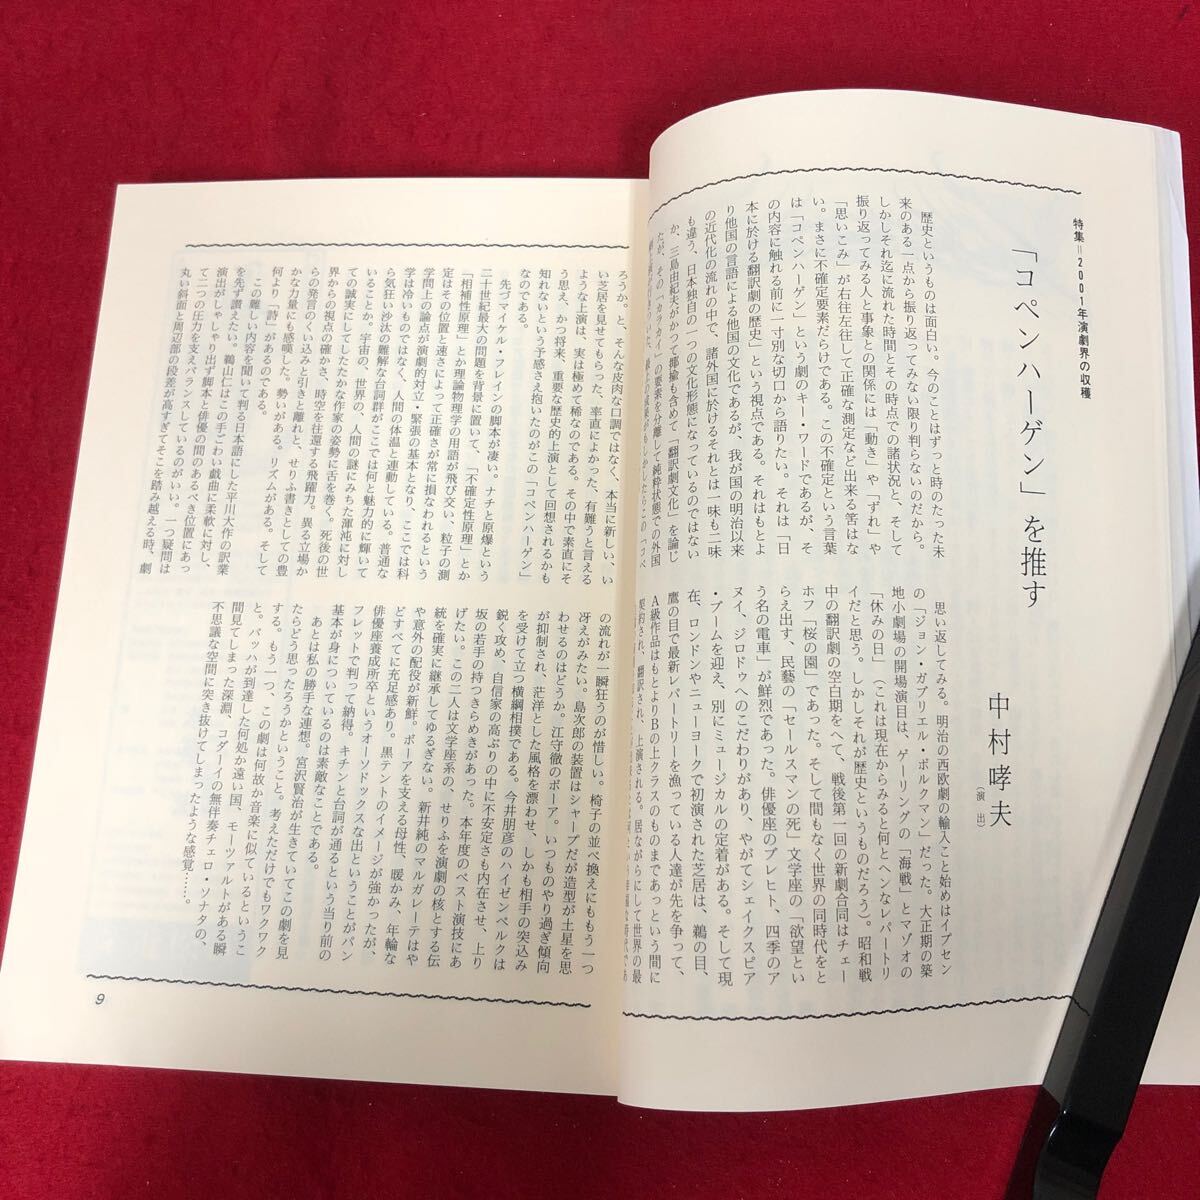 特集＝2001年演劇界の収穫
「コペンハーゲン」を推す
中村哮夫
（演出）
歴史というものは面白い。今のことはずっと時のたった未
来のある一点から振り返ってみない限り判らないのだから。
しかしそれ迄に流れた時間とその時点での諸状況と、そして
振り返ってみる人と事象との関係には「動き」や「ずれ」や
「思いこみ」が右往左往して正確な測定など出来る筈はな
い。まさに不確定要素だらけである。この不確定という言葉
は「コペンハーゲン」という劇のキー・ワードであるが、そ
の内容に触れる前に一寸別な切口から語りたい。それは「日
本に於ける翻訳劇の歴史」という視点である。それはもとよ
り他国の言語による他国の文化であるが、我が国の明治以来
の近代化の流れの中で、諸外国に於けるそれとは一味も二味
も違う、日本独自の一つの文化形態になっているのではない
か、三島由紀夫がかつて揶揄も含めて「翻訳劇文化」を論じ
たが、その「カッカイ」の要素を分離して純粋状態での外国
思い返してみる。明治の西欧劇の輸入こと始めはイプセン
の「ジョン・ガブリエル・ボルクマン」だった。大正期の築
地小劇場の開場演目は、ゲーリングの「海戦」とマゾオの
「休みの日」（これは現在からみると何とヘンなレパートリ
イだと思う。しかしそれが歴史というものだろう）。昭和戦
中の翻訳劇の空白期をへて、戦後第一回の新劇合同はチェー
ホフ「桜の園」であった。そして間もなく世界の同時代をと
らえ出す、民藝の「セールスマンの死」文学座の「欲望とい
う名の電車」が鮮烈であった。俳優座のブレヒト、四季のア
ヌイ、ジロドゥへのこだわりがあり、やがてシェイクスピア
・ブームを迎え、別にミュージカルの定着がある。そして現
在、ロンドンやニューヨークで初演された芝居は、鵜の目、
鷹の目で最新レパートリーを漁っている人達が先を争って、
A級作品はもとよりBの上クラスのものまであっという間に
契約され、翻訳され、上演される。居ながらにして世界の最
ろうか。と、そんな皮肉な口調ではなく、本当に新しい、い
い芝居を見せてもらった、率直によかった、有難うと言える
ような上演は、実は極めて稀なのである。その中で素直にそ
う思え、かつ将来、重要な歴史的上演として回想されるかも
知れないという予感さえ抱いたのがこの「コペンハーゲン」
なのである。
先づマイケル・フレインの脚本が凄い。ナチと原爆という
二十世紀最大の問題を背景に置いて、「不確定性原理」とか
「相補性原理」とか理論物理学の用語が飛び交い、粒子の測
定はその位置と速さによって正確さが常に損なわれるという
学問上の論点が演劇的対立・緊張の基本となり、ここでは科
学は冷いものではなく、人間の体温と連動している。普通な
ら気狂い沙汰の難解な台詞群がここでは何と魅力的に輝いて
いることか。宇宙の、世界の、人間の謎にみちた渾沌に対し
ての誠実にしてしたたかな作家の姿勢に舌を巻く。死後の世
界からの視点の確かさ、時空を往還する飛躍力。異る立場か
らの発言のくい込みと引きと離れと、せりふ書きとしての豊
かな力量にも感嘆した。勢いがある。リズムがある。そして
何より「詩」があるのである。
この難しい内容を聞いて判る日本語にした平川大作の訳業
を先ず讃えたい。鵜山仁はこの手ごわい戯曲に柔軟に対し、
演出がしゃしゃり出ず脚本と俳優の間のあるべき位置にあっ
て二つの圧力を支えバランスしているのがいい。一つ疑問は
丸い斜面と周辺部の段差が高すぎてそこを踏み越える時、劇
の流れが一瞬狂うのが惜しい。椅子の並べ換えにももう一つ
冴えがみたい。島次郎の装置はシャープだが造型が土星を思
わせるのはどうか。江守徹のボーア。いつものやり過ぎ傾向
が抑制され、茫洋とした風格を漂わせ、しかも相手の突込み
を受けて立つ横綱相撲である。今井朋彦のハイゼンベルクは
鋭く攻め、自信家の高ぶりの中に不安定さも内在させ、上り
坂の若手の持つきらめきがあった。本年度のベスト演技にあ
げたい。この二人は文学座系の、せりふを演劇の核とする伝
統を確実に継承してゆるぎない。新井純のマルガレーテはや
や意外の配役が新鮮。ボーアを支える母性、暖かみ、年輪な
どすべてに充足感あり。黒テントのイメージが強かったが、
俳優座養成所卒というオーソドックスな出ということがパン
フレットで判って納得。キチンと台詞が通るという当り前の
基本が身についているのは素敵なことである。
あとは私の勝手な連想。宮沢賢治が生きていてこの劇を見
たらどう思ったろうかということ。考えただけでもワクワク
する。もう一つ、この劇は何故か音楽に似ているというこ
と。バッハが到達した何処か遠い国、モーツァルトがある瞬
間見てしまった深淵、コダーイの無伴奏チェロ・ソナタの、
不思議な空間に突き抜けてしまったような感覚……。
9